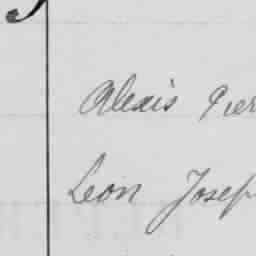 Alexis Pier
Leon Josep